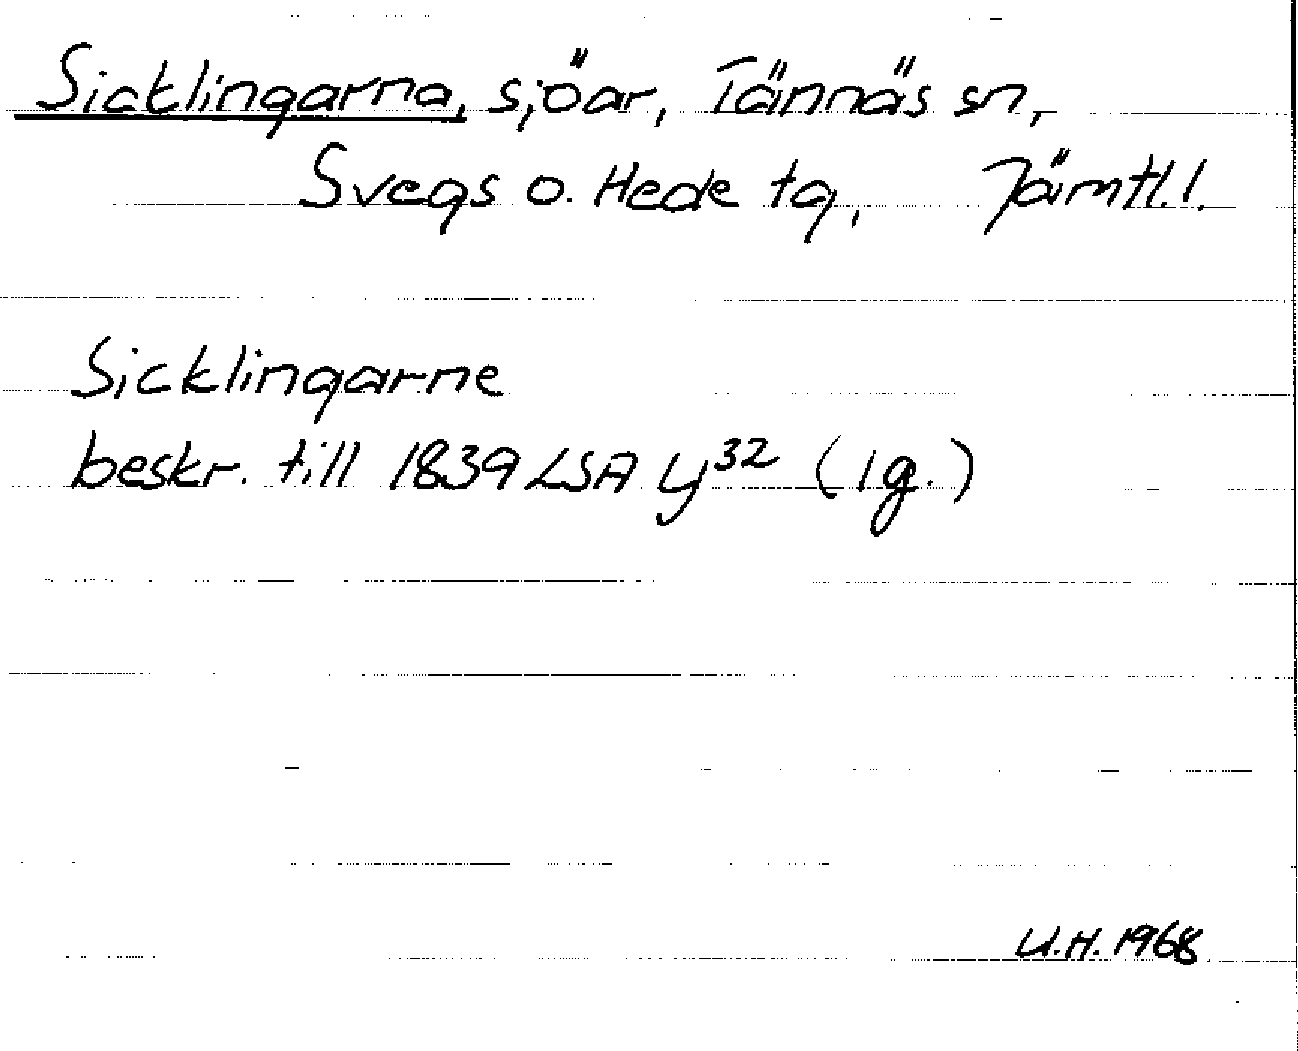 Sicklingarna, sjöar, Tännäs sn,
Svegs o. Hede tg, Jämtl.l.
Sicklingarne
beskr. till 1839 LSA y³² (1 g.)
U.H. 1968